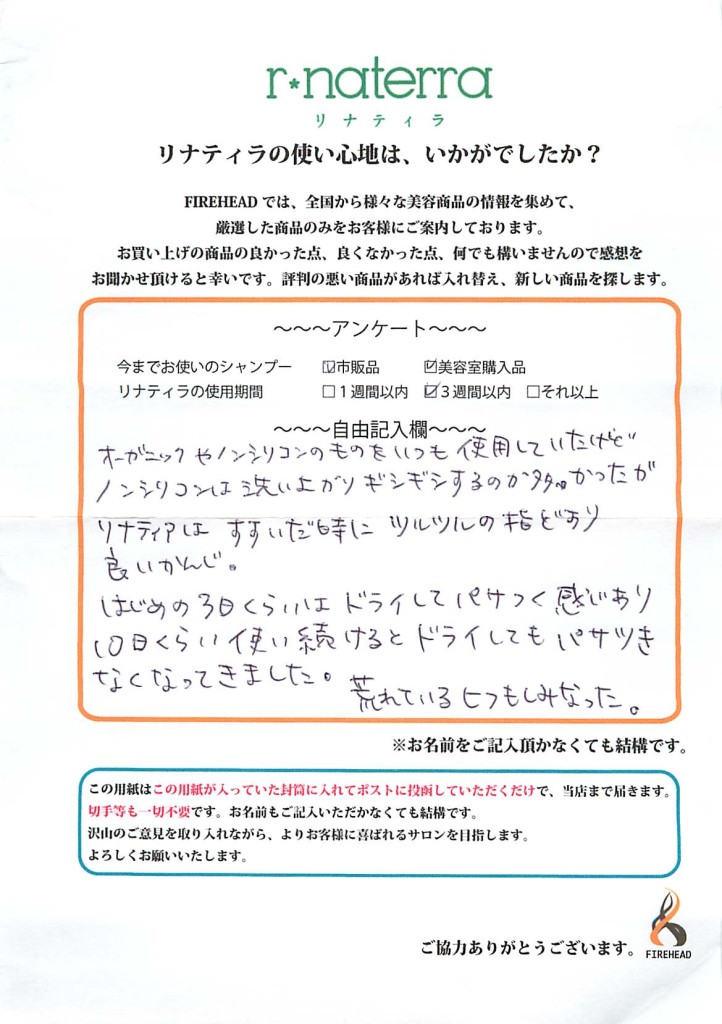 r*naterra
リナティラ
リナティラの使い心地は、いかがでしたか？
FIREHEADでは、全国から様々な美容商品の情報を集めて、
厳選した商品のみをお客様にご案内しております。
お買い上げの商品の良かった点、良くなかった点、何でも構いませんので感想を
お聞かせ頂けると幸いです。評判の悪い商品があれば入れ替え、新しい商品を探します。
〜〜〜アンケート〜〜〜
今までお使いのシャンプー ☑市販品 ☑美容室購入品
リナティラの使用期間 □１週間以内 ☑３週間以内 □それ以上
〜〜〜自由記入欄〜〜〜
オーガニックやノンシリコンのものをいつも使用していたけど
ノンシリコンは洗い上がりギシギシするのが多かったが
リナティアはすすいだ時にツルツルの指どおり
良いかんじ。
はじめの3日くらいはドライしてパサつく感じあり
10日くらい使い続けるとドライしてもパサツき
なくなってきました。
荒れている ヒフもしみなった。
※お名前をご記入頂かなくても結構です。
この用紙はこの用紙が入っていた封筒に入れてポストに投函していただくだけで、当店まで届きます。
切手等も一切不要です。お名前もご記入いただかなくても結構です。
沢山のご意見を取り入れながら、よりお客様に喜ばれるサロンを目指します。
よろしくお願いいたします。
ご協力ありがとうございます。
FIREHEAD